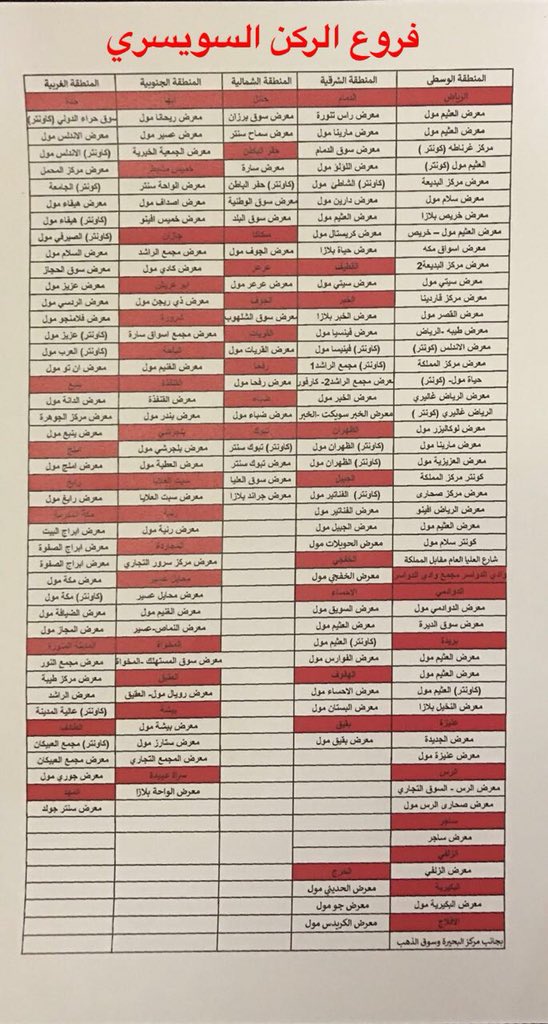 فروع الركن السويسري
المنطقة الوسطى
الرياض
معرض العثيم مول
معرض العثيم مول
مركز غرناطه (كونتر)
العثيم مول (كونتر)
معرض مركز البديعة
معرض سلام مول
معرض خريص بلازا
معرض العثيم مول – خريص
معرض اسواق مكه
معرض مركز البديعة2
معرض سيتي مول
معرض مركز قاردينا
معرض القصر مول
معرض طيبه -الرياض
معرض الاندلس (كونتر)
معرض مركز المملكة
حياة مول- (كونتر)
معرض الرياض غاليري
الرياض غاليري (كونتر)
معرض لوكاليزر مول
معرض مارينا مول
معرض العزيزية مول
كونتر مركز المملكة
معرض مركز صحارى
معرض الرياض افينو
معرض العثيم مول
كونتر سلام مول
شارع العليا العام مقابل المملكة
وادي الدواسر مجمع وادي الدواسر
الدوادمي
معرض الدوادمي مول
معرض سوق الديرة
بريدة
معرض العثيم مول
معرض العثيم مول
(كاونتر) العثيم مول
معرض النخيل بلازا
عنيزة
معرض الجديدة
معرض عنيزة مول
الرس
معرض الرس - السوق التجاري
معرض صحارى الرس مول
ساجر
معرض ساجر
الزلفي
معرض الزلفي
البكيرية
معرض البكيرية مول
الافلاج
بجانب مركز البحيرة وسوق الذهب
المنطقة الشرقية
الدمام
معرض راس تنورة
معرض مارينا مول
معرض سوق الدمام
معرض اللؤلؤ مول
(كاونتر) الشاطئ مول
معرض دارين مول
معرض العثيم مول
معرض كريستال مول
معرض حياة بلازا
القطيف
معرض سيتي مول
الخبر
معرض الخبر بلازا
معرض فينسيا مول
(كاونتر) فينيسا مول
(كاونتر) مجمع الراشد1
معرض مجمع الراشد2- كارفور
معرض الخبر مول
معرض الخبر سويكت -الخبر
الظهران
(كاونتر) الظهران مول
(كاونتر) الظهران مول
الجبيل
(كاونتر) الفناتير مول
معرض الفناتير مول
معرض الجبيل مول
معرض الحويلات مول
الخفجي
معرض الخفجي مول
الاحساء
معرض السويق مول
معرض العثيم مول
(كاونتر) العثيم مول
معرض الفوارس مول
الهفوف
معرض الاحساء مول
معرض البستان مول
بقيق
معرض بقيق مول
الخرج
معرض الحديثي مول
معرض جو مول
معرض الكريدس مول
المنطقة الشمالية
حائل
معرض سوق برزان
معرض سماح سنتر
حفر الباطن
معرض سارة
(كاونتر) حفر الباطن
معرض سوق الوطنية
معرض سوق البلد
سكاكا
معرض الجوف مول
عرعر
معرض عرعر مول
الجوف
معرض سوق الشلهوب
القريات
معرض القريات مول
رفحا
معرض رفحا مول
ضباء
معرض ضباء مول
تبوك
(كاونتر) تبوك سنتر
معرض تبوك سنتر
معرض سوق العليا
معرض جراند بلازا
المنطقة الجنوبية
ابها
معرض ريحانا مول
معرض عسير مول
معرض الجمعية الخيرية
خميس مشيط
معرض الواحة سنتر
معرض اصداف مول
معرض خميس افينو
جازان
معرض مجمع الراشد
معرض كادي مول
ابو عريش
معرض ذي ريجن مول
شرورة
معرض مجمع اسواق سارة
الباحة
معرض الغنيم مول
القنفذة
معرض القنفذة
معرض بندر مول
بلجرشي
معرض بلجرشي مول
معرض العطية مول
سبت العلايا
معرض سبت العلايا
رنية
معرض رنية مول
المجاردة
معرض مركز سرور التجاري
محايل عسير
معرض محايل عسير
معرض الغنيم مول
معرض النماص-عسير
المخواة
معرض سوق المستهلك -المخواة
العقيق
معرض رويال مول- العقيق
بيشة
معرض بيشة مول
معرض ستارز مول
معرض المجمع التجاري
سراة عبيدة
معرض الواحة بلازا
المنطقة الغربية
جدة
سوق حراء الدولي (كاونتر)
معرض الاندلس مول
(كاونتر) الاندلس مول
معرض مركز المحمل
(كونتر) الجامعة
معرض هيفاء مول
(كاونتر) هيفاء مول
(كاونتر) الصيرفي مول
معرض السلام مول
معرض سوق الحجاز
معرض عزيز مول
معرض الردسي مول
معرض فلامنجو مول
(كاونتر) عزيز مول
(كاونتر) العرب مول
معرض ان تو مول
ينبع
معرض الدانة مول
معرض مركز الجوهرة
معرض ينبع مول
املج
معرض املج مول
رابغ
معرض رابغ مول
مكة المكرمة
معرض ابراج البيت
معرض ابراج الصفوة
معرض ابراج الصفوة
معرض مكة مول
(كاونتر) مكة مول
معرض الضيافة مول
معرض المجاز مول
المدينة المنورة
معرض مجمع النور
معرض مركز طيبة
معرض الراشد
(كاونتر) عالية المدينة
الطائف
(كاونتر) مجمع العبيكان
معرض مجمع العبيكان
معرض جوري مول
المهد
معرض سنتر جولد